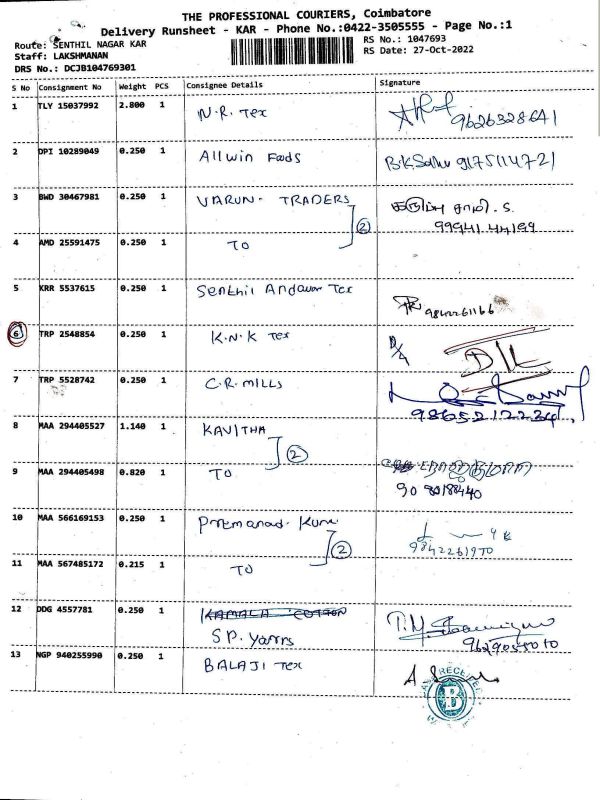 THE PROFESSIONAL COURIERS, Coimbatore
Delivery Runsheet - KAR - Phone No.:0422-3505555 - Page No.:1
Route: SENTHIL NAGAR KAR
RS No.: 1047693
Staff: LAKSHMANAN
RS Date: 27-Oct-2022
DRS No.: DCJB104769301
S No Consignment No Weight PCS Consignee Details Signature
1 TLY 15037992 2.800 1 N.R. Tex 9626328641
2 DPI 10289049 0.250 1 Allwin Foods B.K. 9175114721
3 BWD 30467981 0.250 1 VARUN. TRADERS கருப்பு சாமி. S.
2 99941 44199
4 AMD 25591475 0.250 1 TO
5 KRR 5537615 0.250 1 Senthil Andavar Tex 9842261166
6 TRP 2548854 0.250 1 K.N.K Tex D/L
7 TRP 5528742 0.250 1 C.R.MILLS
8 MAA 294405527 1.140 1 KAVITHA
2
9 MAA 294405498 0.820 1 TO
10 MAA 566169153 0.250 1
2 9842261970
11 MAA 567485172 0.215 1 TO
12 DDG 4557781 0.250 1 KAMALA COTTON
S.P. Yarns
13 NGP 940255990 0.250 1 BALAJI Tex
RECEIVED
B